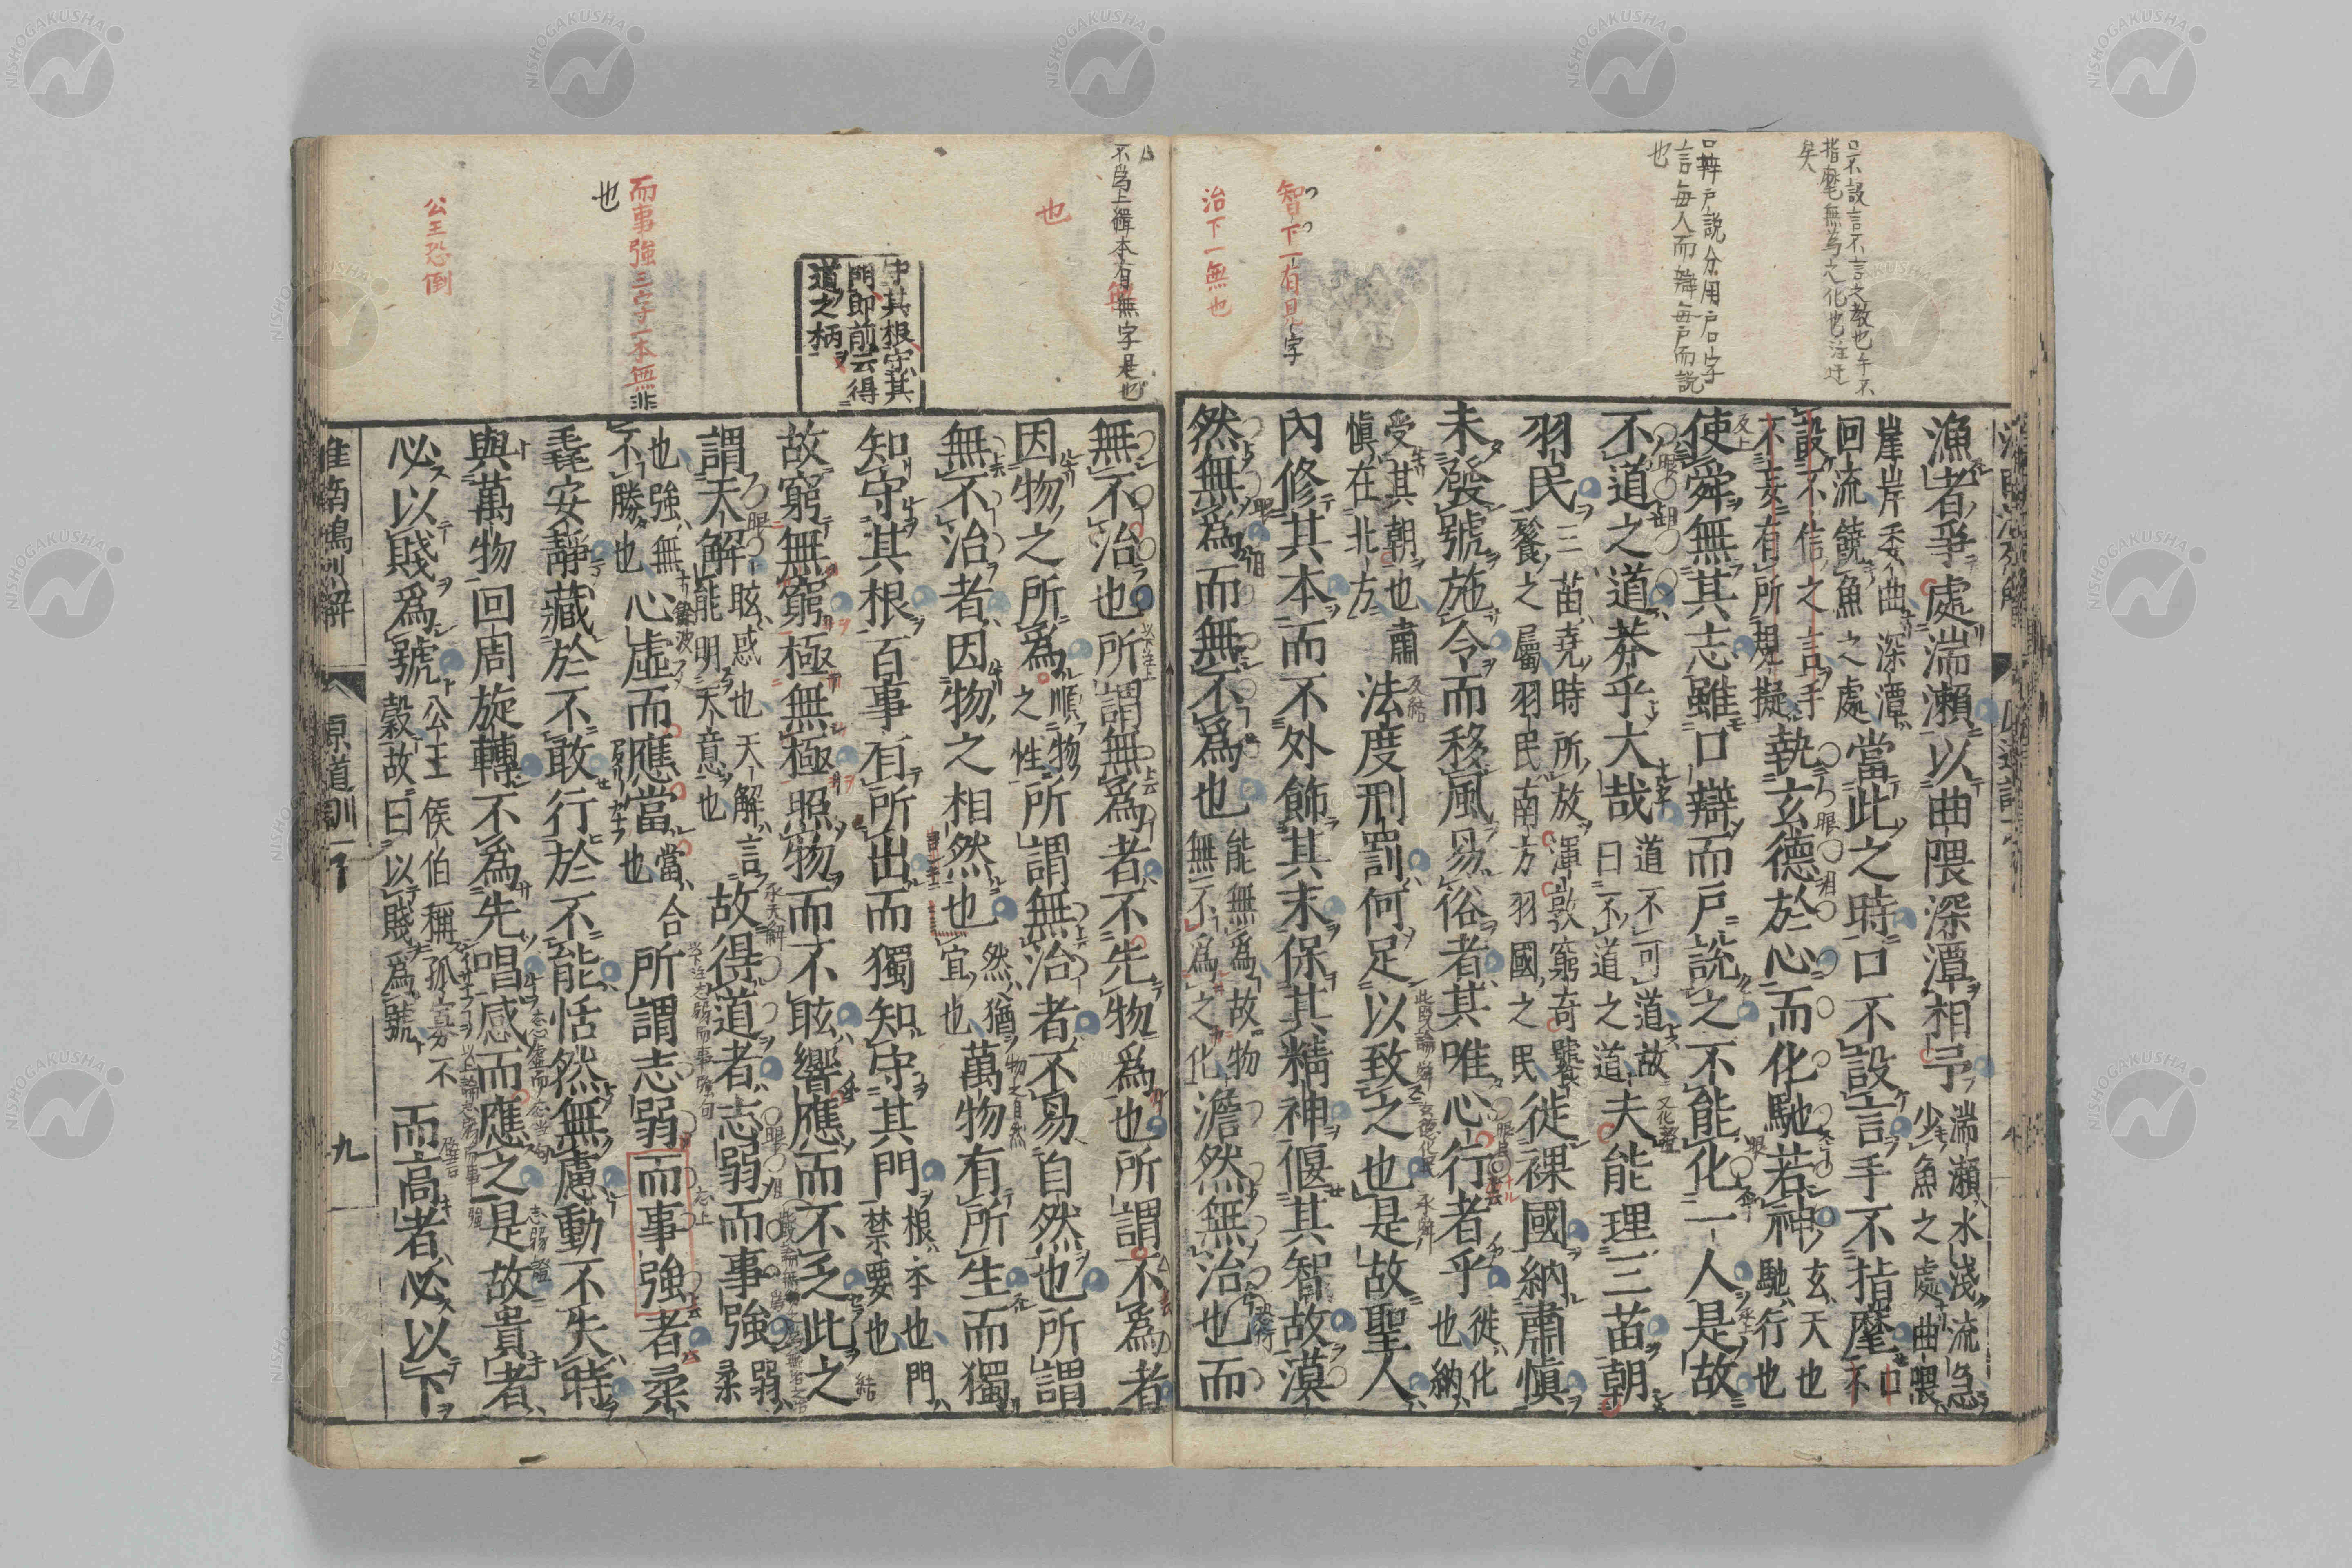 漁者爭處湍瀨以曲隈深潭相予湍瀨水淺流急少魚之處曲隈
崖岸委曲深潭回流饒魚之處當此之時口不設言手不指麾口不
設不信之言手不妄有所規擬執玄德於心而化馳若神玄天也馳行也
使舜無其志雖口辯而戶說之不能化一人是故
不道之道莽乎大哉道不可道故曰不道之道夫能理三苗朝
羽民三苗堯時所放渾敦窮奇饕餮之屬羽民南方羽國之民徙裸國納肅慎
未發號施令而移風易俗者其唯心行者乎徙化也納
受其朝也肅慎在北方法度刑罰何足以致之也是故聖人
內修其本而不外飾其末保其精神偃其智故漠
然無為而無不為也能無為故物無不為之化澹然無治也而
無不治也所謂無為者不先物為也所謂不為者
因物之所為順物之性所謂無治者不易自然也所謂
無不治者因物之相然也然猶宜也萬物有所生而獨
知守其根百事有所出而獨知守其門根本也門禁要也
故窮無窮極無極照物而不眩響應而不乏此之
謂天解眩惑也天解言能明天意也故得道者志弱而事強弱柔
也強無不勝也心虛而應當當合也所謂志弱而事強者柔
毳安靜藏於不敢行於不能恬然無慮動不失時
與萬物回周旋轉不為先唱感而應之是故貴者
必以賤為號公王侯伯稱孤寡不穀故曰以賤為號而高者必以下
原道訓
九
守其根守其
門即前云得
道之柄
口不設言不言之教也手不
指麾無為之化也注迂
矣
口辨戶說分用戶口字
言每人而辯每戶而說
也
智下一有見字
治下一無也
不為上緝本有無字是也
也
而事強三字一本無非
也
公王恐倒